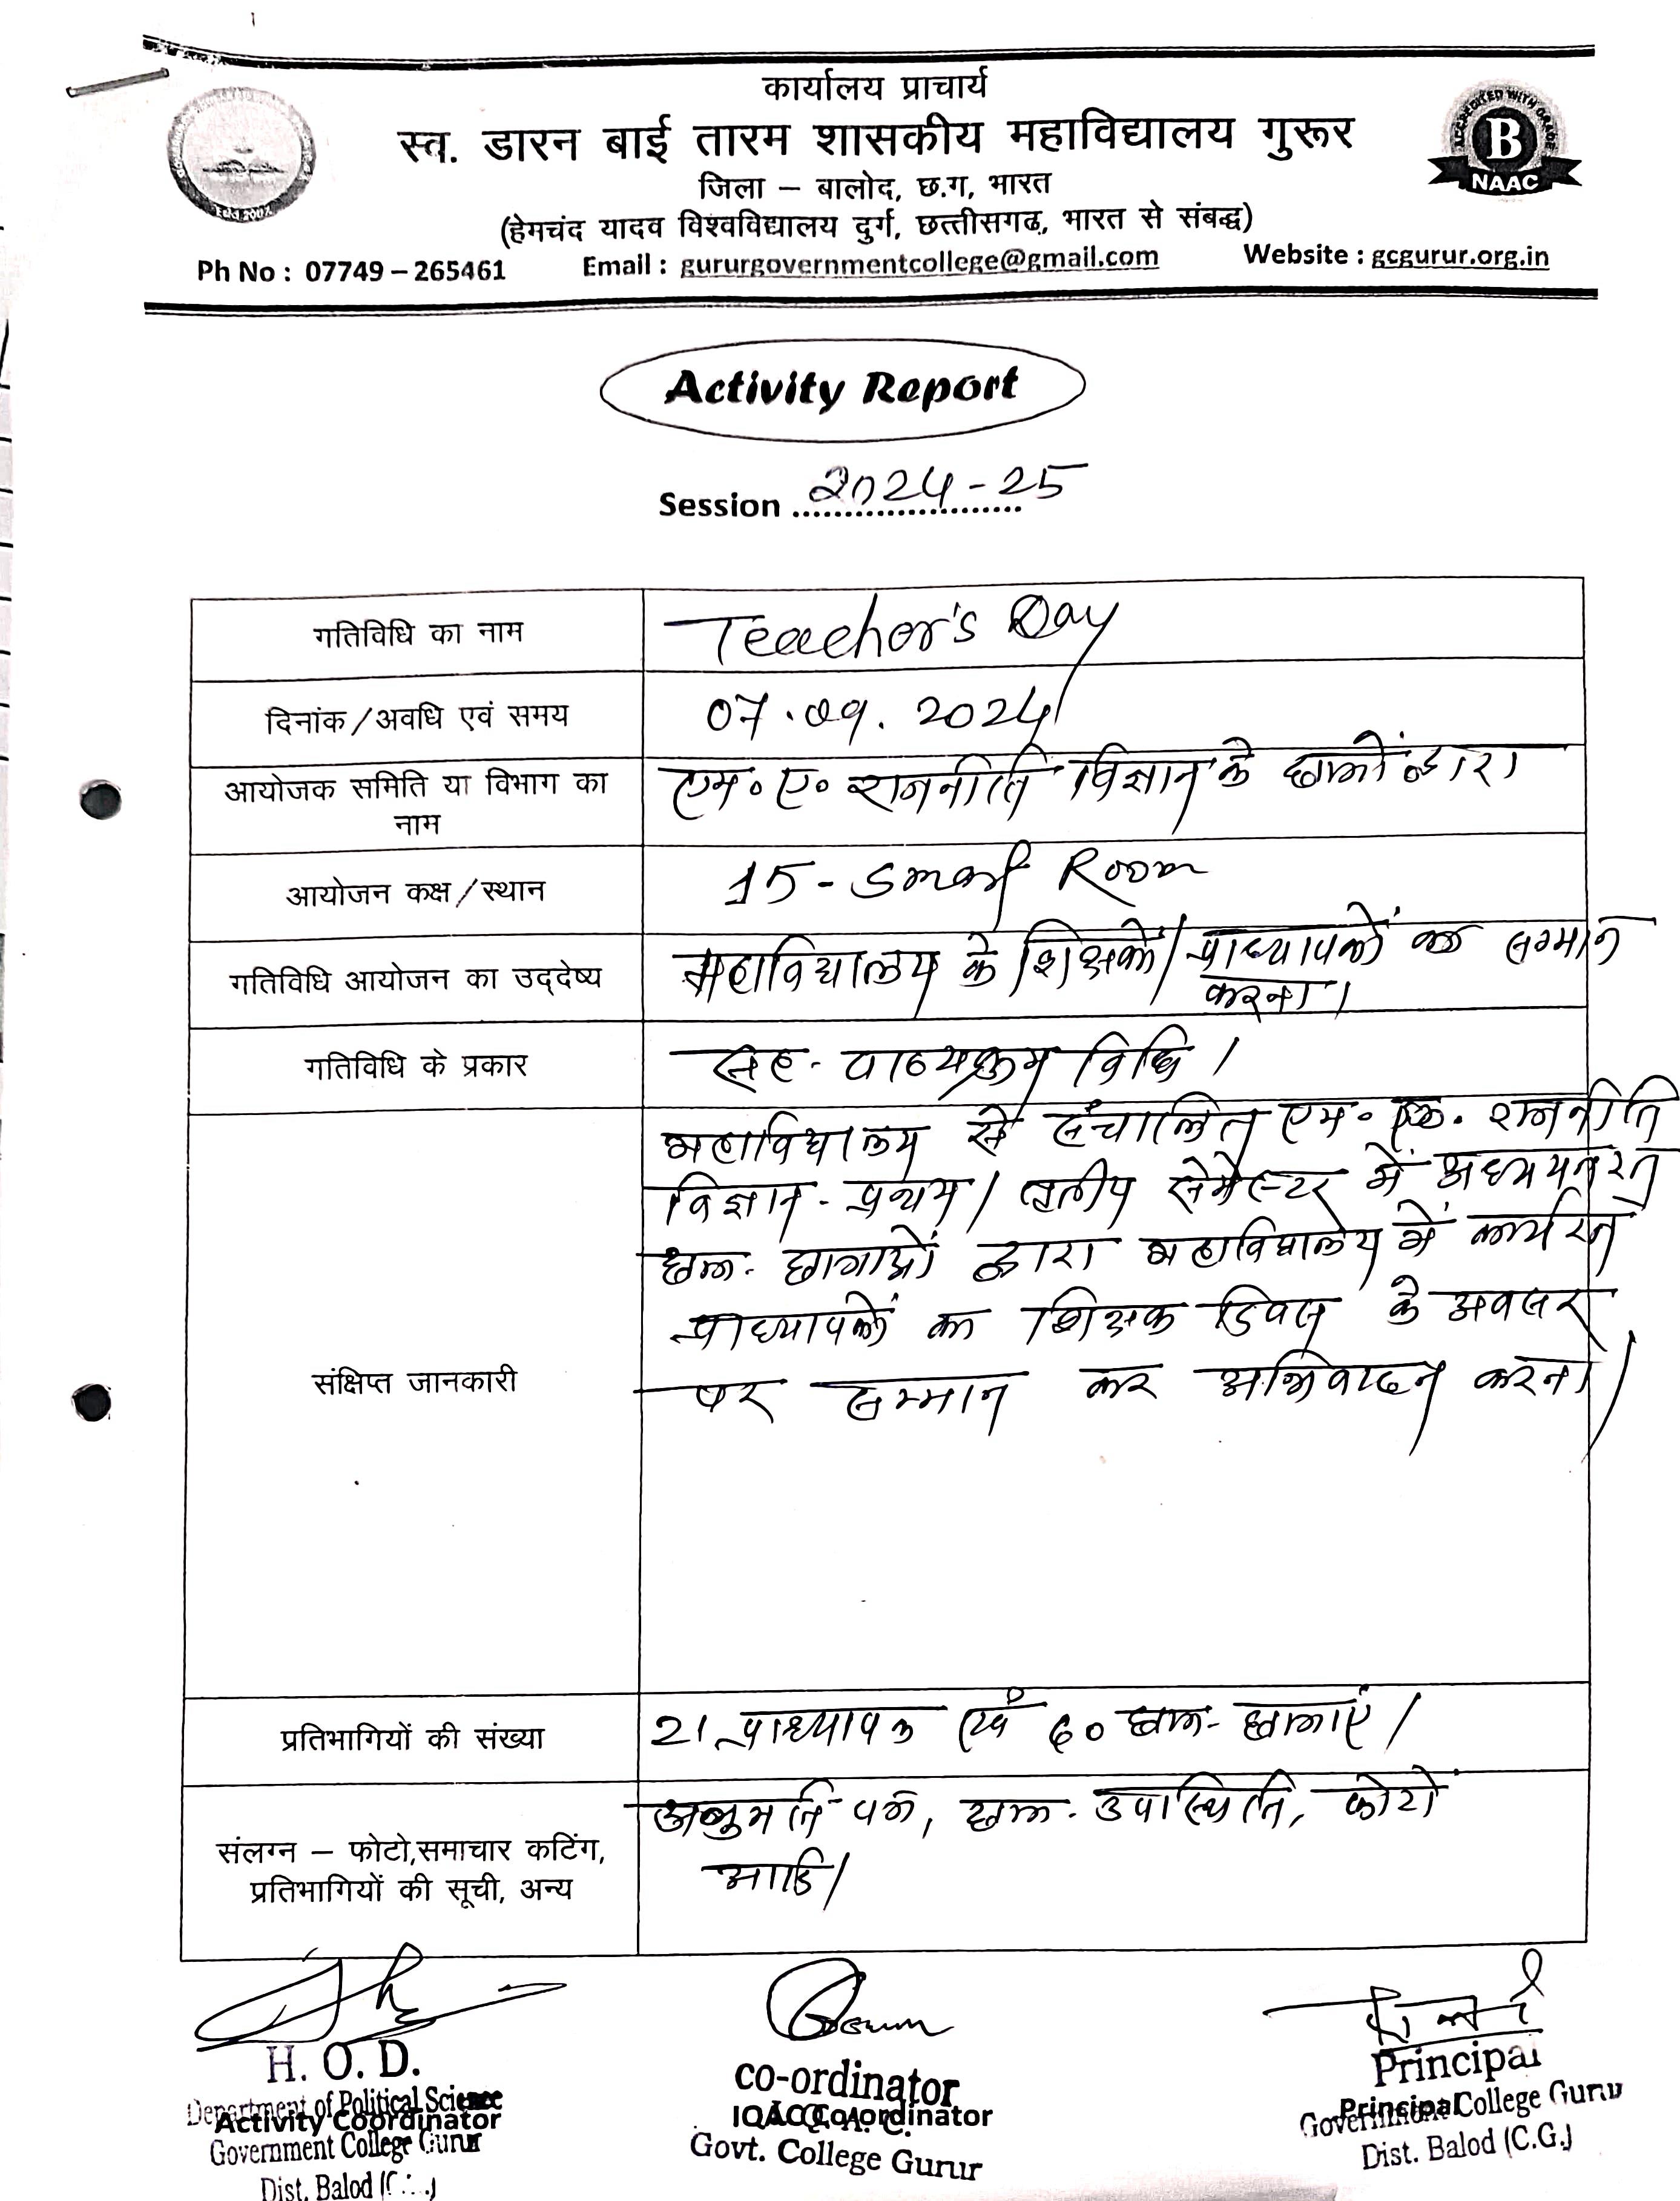 कार्यालय प्राचार्य
स्व. डारन बाई तारम शासकीय महाविद्यालय गुरूर
जिला – बालोद, छ.ग, भारत
(हेमचंद यादव विश्वविद्यालय दुर्ग, छत्तीसगढ, भारत से संबद्ध)
Ph No : 07749 – 265461 Email : gururgovernmentcollege@gmail.com Website : gcgurur.org.in
Estd 2007
ACCREDITED WITH GRADE
B
NAAC
Activity Report
Session 2024-25
गतिविधि का नाम
Teacher's Day
दिनांक/अवधि एवं समय
07.09.2024
आयोजक समिति या विभाग का
नाम
एम॰ ए॰ राजनीति विज्ञान के छात्रों द्वारा
आयोजन कक्ष/स्थान
15 - Smart Room
गतिविधि आयोजन का उद्देष्य
महाविद्यालय के शिक्षकों/प्राध्यापकों का सम्मान
करना।
गतिविधि के प्रकार
सह - पाठ्यक्रम विधि।
संक्षिप्त जानकारी
महाविद्यालय से संचालित एम॰ ए. राजनीति
विज्ञान - प्रथम/तृतीय सेमेस्टर में अध्ययनरत
छात्र - छात्राओं द्वारा महाविद्यालय में कार्यरत
प्राध्यापकों का शिक्षक दिवस के अवसर
पर सम्मान कर अभिवादन करना।
प्रतिभागियों की संख्या
21 प्राध्यापक एवं ६० छात्र - छात्राएं।
संलग्न – फोटो,समाचार कटिंग,
प्रतिभागियों की सूची, अन्य
अनुमति पत्र, छात्र - उपस्थिति, फोटो
आदि।
H. O. D.
Department of Political Science
Activity Coordinator
Government College Gurur
Dist. Balod
co-ordinator
IQAC Coordinator
I.Q.A.C.
Govt. College Gurur
Principal
Principal
Government College Gurur
Dist. Balod (C.G.)